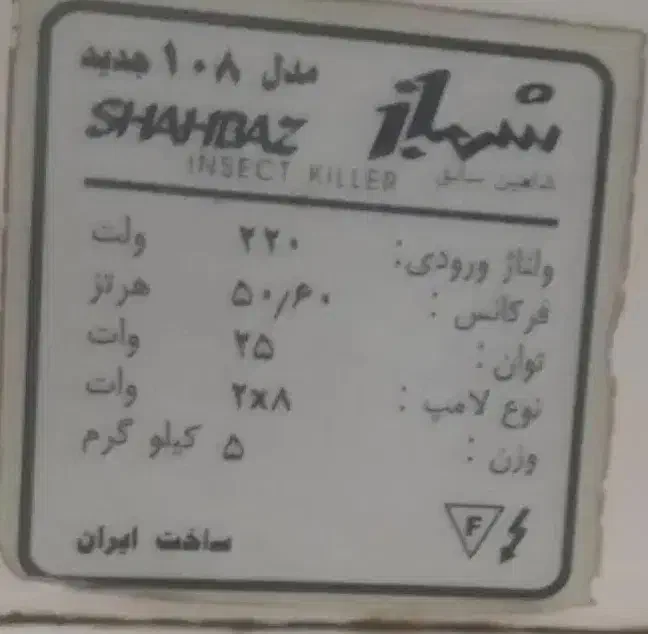 مدل ۱۰۸ جدید
شهباز
SHAHBAZ
INSECT KILLER
شاهین سابق
ولتاژ ورودی: ۲۲۰ ولت
فرکانس: ۵۰/۶۰ هرتز
توان: ۲۵ وات
نوع لامپ: ۲x۸ وات
وزن: ۵ کیلو گرم
F
ساخت ایران